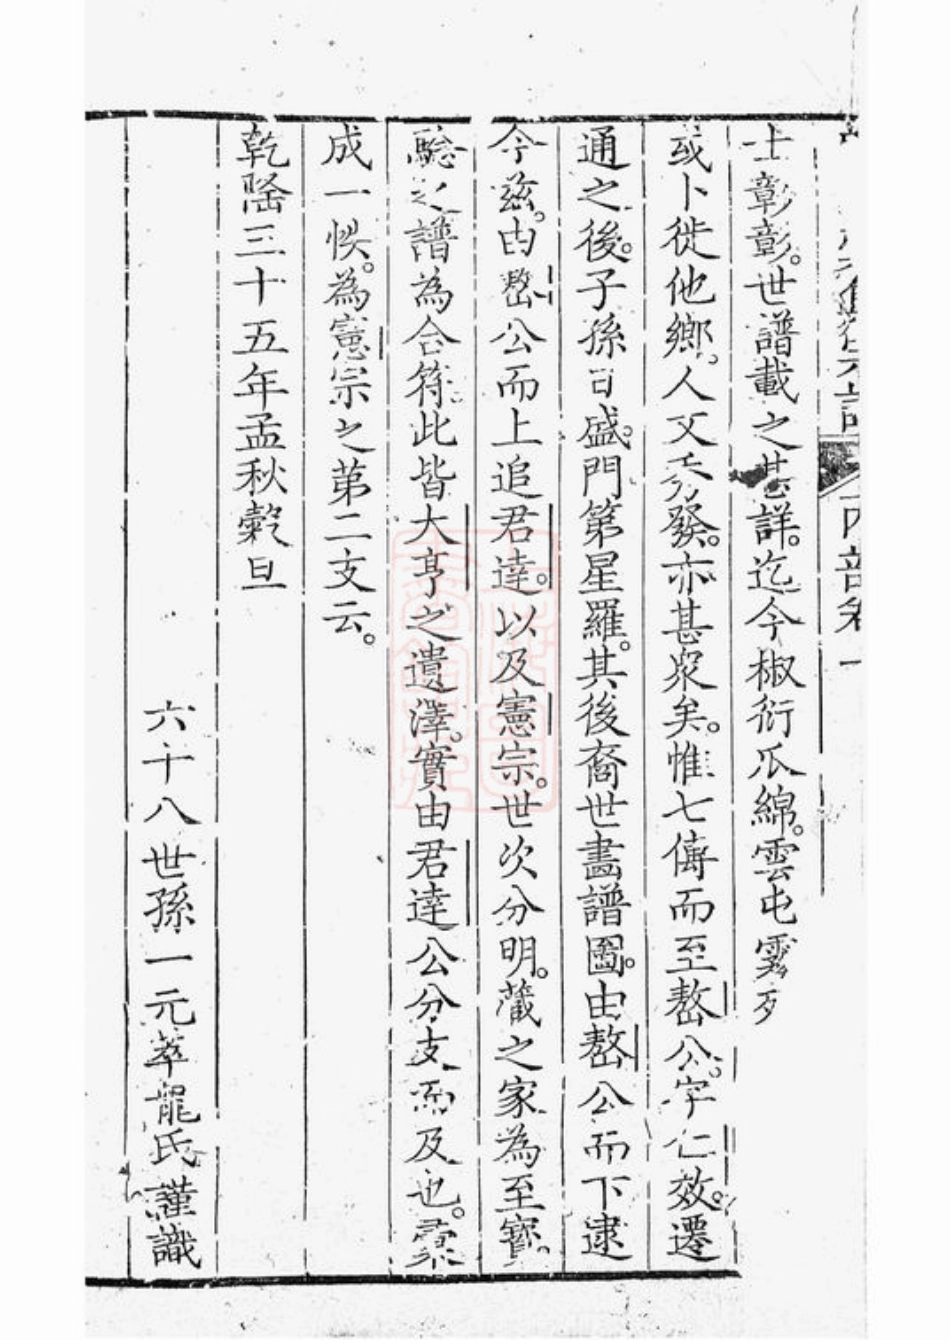 內部卷一
士彰彰。世譜載之甚詳。迄今椒衍瓜綿。雲屯霧
或卜徙他鄉。人文秀發。亦甚衆矣。惟七傳而至嶅公。字仁效。遷
通之後。子孫日盛。門第星羅。其後裔世畵譜圖。由嶅公而下逮
今茲。由嶅公而上追君達。以及憲宗。世次分明。藏之家為至寳。
驗之譜為合符此皆大亨之遺澤。實由君達公分支而及也。彙
成一帙。為憲宗之苐二支云。
乾隆三十五年孟秋穀旦
六十八世孫一元萃龍氏謹識